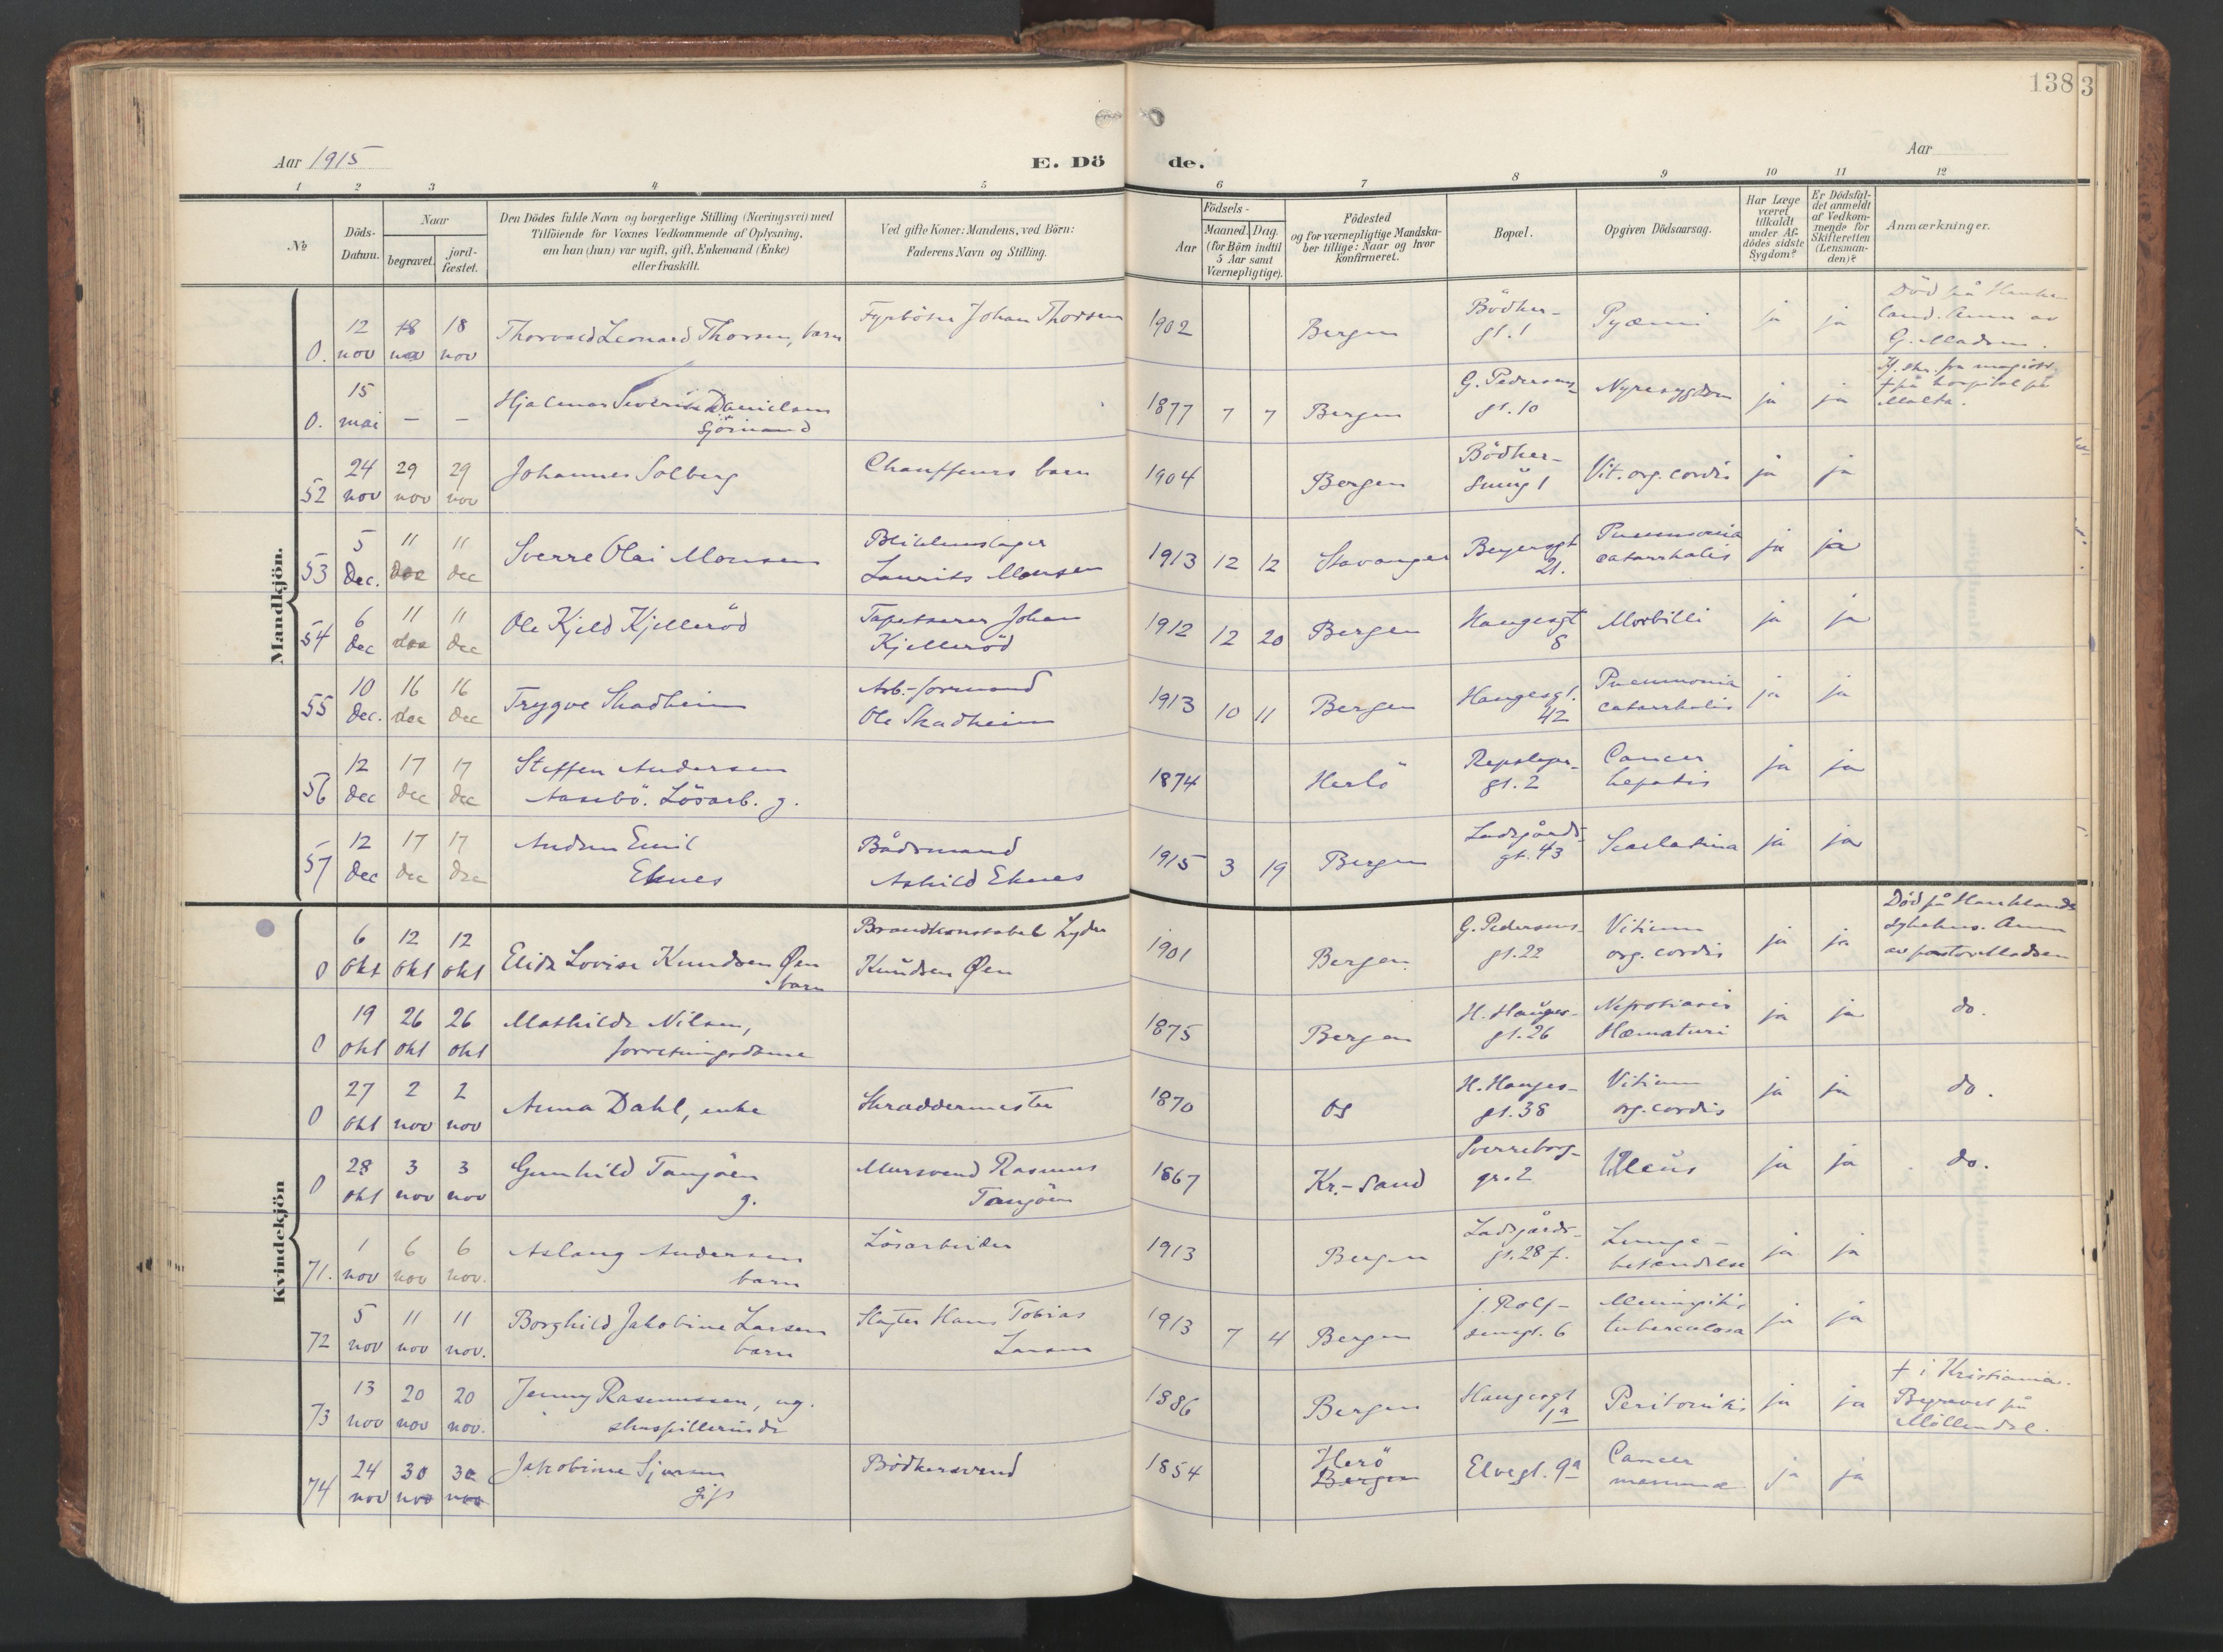 138 3
Aar 1915
E. Dö de.
Aar
1 2 3 4 5 6 7 8 9 10 11 12
No
Döds-Datum.
Naar
begravet.
jord-fæstet.
Den Dödes fulde Navn og borgerlige Stilling (Næringsvei) med
Tilföiende for Voxnes Vedkommende af Oplysning,
om han (hun) var ugift, gift, Enkemand (Enke)
eller fraskilt.
Ved gifte Koner: Mandens, ved Börn:
Faderens Navn og Stilling.
Födsels-
Aar
Maaned. Dag.
(for Börn indtil
5 Aar samt
Værnepligtige).
Födested
og for værnepligtige Mandska-
ber tillige: Naar og hvor
Konfirmeret.
Bopæl.
Opgiven Dödsaarsag.
Har Læge
været
tilkaldt
under Af-
dödes sidste
Sygdom?
Er Dödsfal-
det anmeldt
af Vedkom-
mende for
Skifteretten
(Lensman-
den)?
Anmærkninger.
Mandkjön.
0. 12 nov 18 nov 18 nov Thorvald Leonard Thorsen, barn Fyrböter Johan Thorsen 1902 Bergen Bödker-gt. 1 Pyæmi ja ja Död på Hauke-land. Anm av G. Madsen.
0. 15 mai — — Hjalmar Severin Danielsen Sjömand 1877 7 7 Bergen G. Pedersens-gt. 10 Nyresygdom ja ja † på hospital på Malta.
52 24 nov 29 nov 29 nov Johannes Solberg Chauffeurs barn 1904 Bergen Bödker-smug 1 Vit. org. cordis ja ja
53 5 dec. 11 dec 11 dec Sverre Olai Monsen Blikkenslager Laurits Monsen 1913 12 12 Stavanger Beyersgt 21. Pneumonia catarrhalis ja ja
54 6 dec 11 dec 11 dec Ole Kjeld Kjelleröd Tapetserer Johan Kjelleröd 1912 12 20 Bergen Haugesgt 8 Morbilli ja ja
55 10 dec. 16 dec 16 dec Trygve Skadheim Arb.-formand Ole Skadheim 1913 10 11 Bergen Haugesgt. 42 Pneumonia catarrhalis ja ja
56 12 dec 17 dec 17 dec Steffen Andersen Aasebö. Lösarb. g. 1874 Herlö Repslager-gt. 2 Cancer hepatis ja ja
57 12 dec 17 dec 17 dec Emil Eknes Bådsmand Eknes 1915 3 19 Bergen Ladegårds-gt. 43 Scarlatina ja ja
Kvindekjön
0 6 okt 12 okt 12 okt Elida Lovise Knudsen Øen barn Brandkonstabel Lyder Knudsen Øen 1901 Bergen. G. Pedersens-gt. 22 Vitium org. cordis ja ja Död på Hauklands sykehus. Anm av pastor Madsen
0 19 okt 26 okt 26 okt Mathilde Nilsen, forretningsdame 1875 Bergen H. Hauges-gt. 26 Hæmaturi ja ja do.
0 27 okt 2 nov 2 nov Anna Dahl, enke Skræddermester 1870 Os H. Hauges-gt. 38 Vitium org. cordis ja ja do.
0 28 okt 3 nov 3 nov Gunhild Tangöen g. Mursvend Rasmus Tangöen 1867 Kr.-Sand Sverreborg-gt. 2 Ileus ja ja do.
71. 1 nov 6 nov 6 nov. Aslaug Andersen barn Lösarbeider 1913 Bergen Ladegårds-gt. 28 f. Lunge-betændelse ja ja
72 5 nov 11 nov 11 nov. Borghild Jakobine Larsen barn Slagter Hans Tobias Larsen 1913 7 4 Bergen J. Rolf-sensgt. 6 Meningitis tuberculosa ja ja
73 13 nov 20 nov 20 nov. Jenny Rasmussen, ug. skuespillerinde 1886 Bergen Haugesgt 1a Peritonitis ja ja † i Kristiania. Begravet på Möllendal.
74 24 nov 30 nov 30 nov Jakobine gift Bödkersvend 1854 Herö Bergen Elvegt. 9a Cancer mammæ ja ja